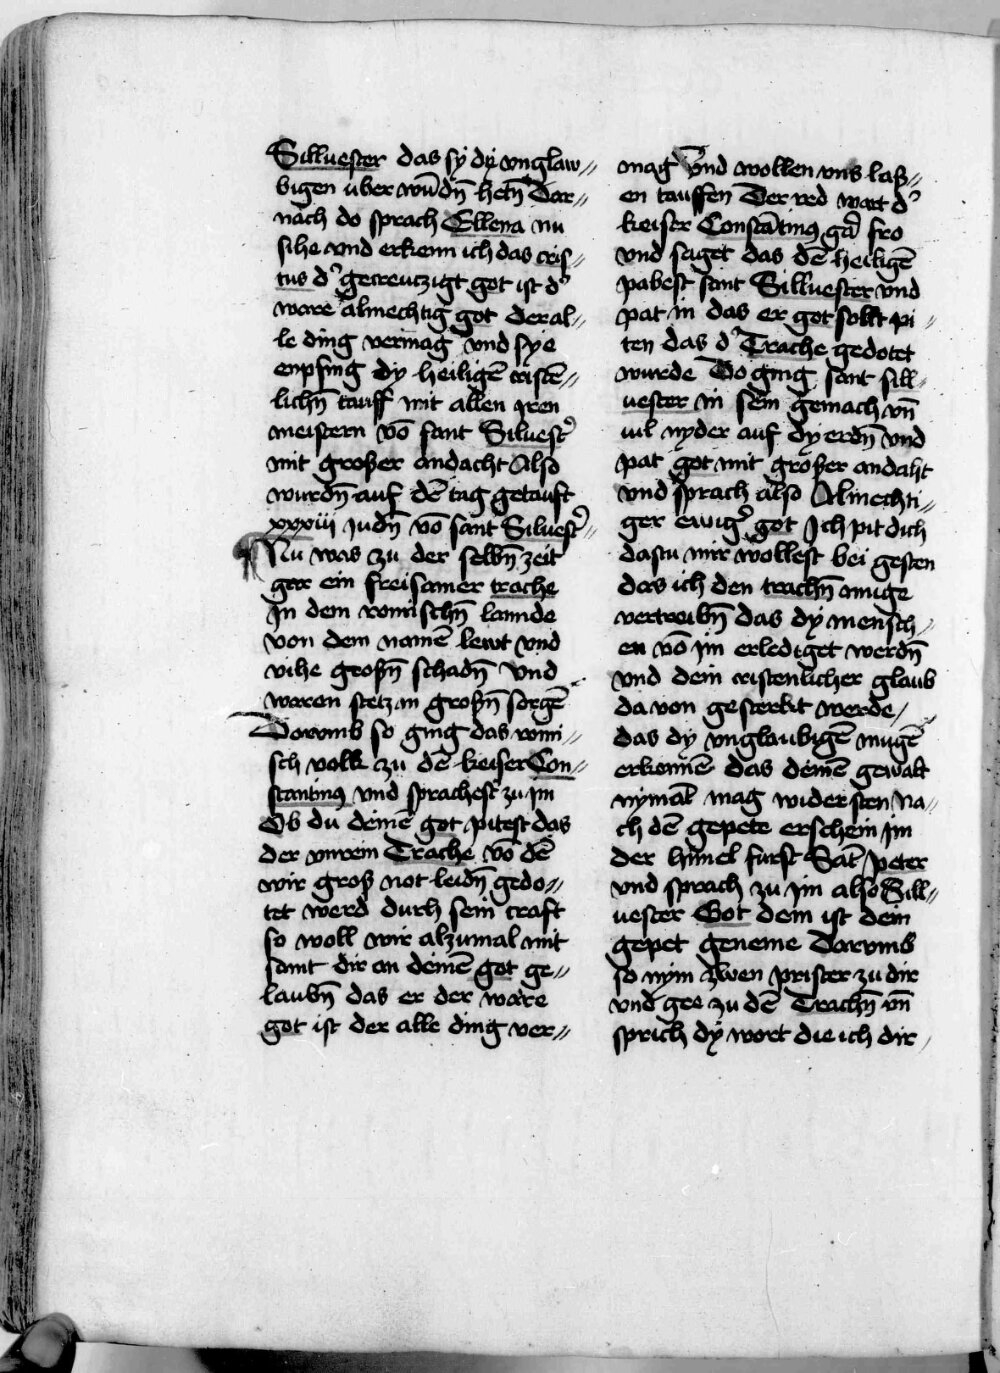 Silluester das sy dy vnglaw//
bigen uber wūdn̄ hetn̄ Dar//
nach do sprach Ellena nu
sihe vnd erkenn ich das cris/
tus dˀ gecreutzigt got ist dˀ
ware almechtig got der al//
le ding vermag vnd sye
enpfing dy heiligē cristē//
lichn̄ tauff mit allen iren
meistern vō sant Siluestˀ
mit großer andacht Also
wurdn̄ auf dē tag getauft
xxxiii judn̄ vō sant Siluestˀ//
Nu was zu der selbn̄ zeit
gar ein freisamer trache
In dem romischn̄ lannde
von dem namē lewt vnd
vihe großn̄ schadn̄ Vnd
waren stetz in großn̄ sorgē
Darvmb so ging das romi//
sch volk zu dē keiser Con//
stantinꝯ vnd sprachest zu im
Ob du deinē got pitest das
der vnrein Trache vō dē
wir groß not leidn̄ gedo//
tet werd durch sein craft
so woll wir alzumal mit
samt dir an deinē got ge//
laubn̄ das er der ware
got ist der alle ding ver//
mag Vnd wollen vns laß//
en tauffen Der red wart dˀ
keiser Constātinꝯ gā fro
vnd saget das dē heiligē
pabest sant Silluester vnd
pat in das er got sollt pi//
ten das dˀ Trache gedotet
wurde Do ging sant sill//
uester in sein gemach vn̄
uil nyder auf dy erdn̄ vnd
pat got mit großer andaht
vnd sprach also Almechti/
ger ewigˀ got Ich pit dich
dastu mir wollest bei gesten
das ich den trachn̄ muge
vertreibn̄ das dy mensch//
en vō im erlediget werdn̄
vnd dein cristenlicher glaub
da von gesterkt werde/
das dy vnglaubigē mugē
erkennē das deinē gewalt
nymāt mag widersten Na//
ch dē gepete erschein im
der himel furst Sāt peter
vnd sprach zu im also Sill//
uester Got dem ist dein
gepet geneme Darvmb
so nym zwen prister zu dir
vnd gee zu dē Trachn̄ vn̄
sprich dy wort die ich dir/